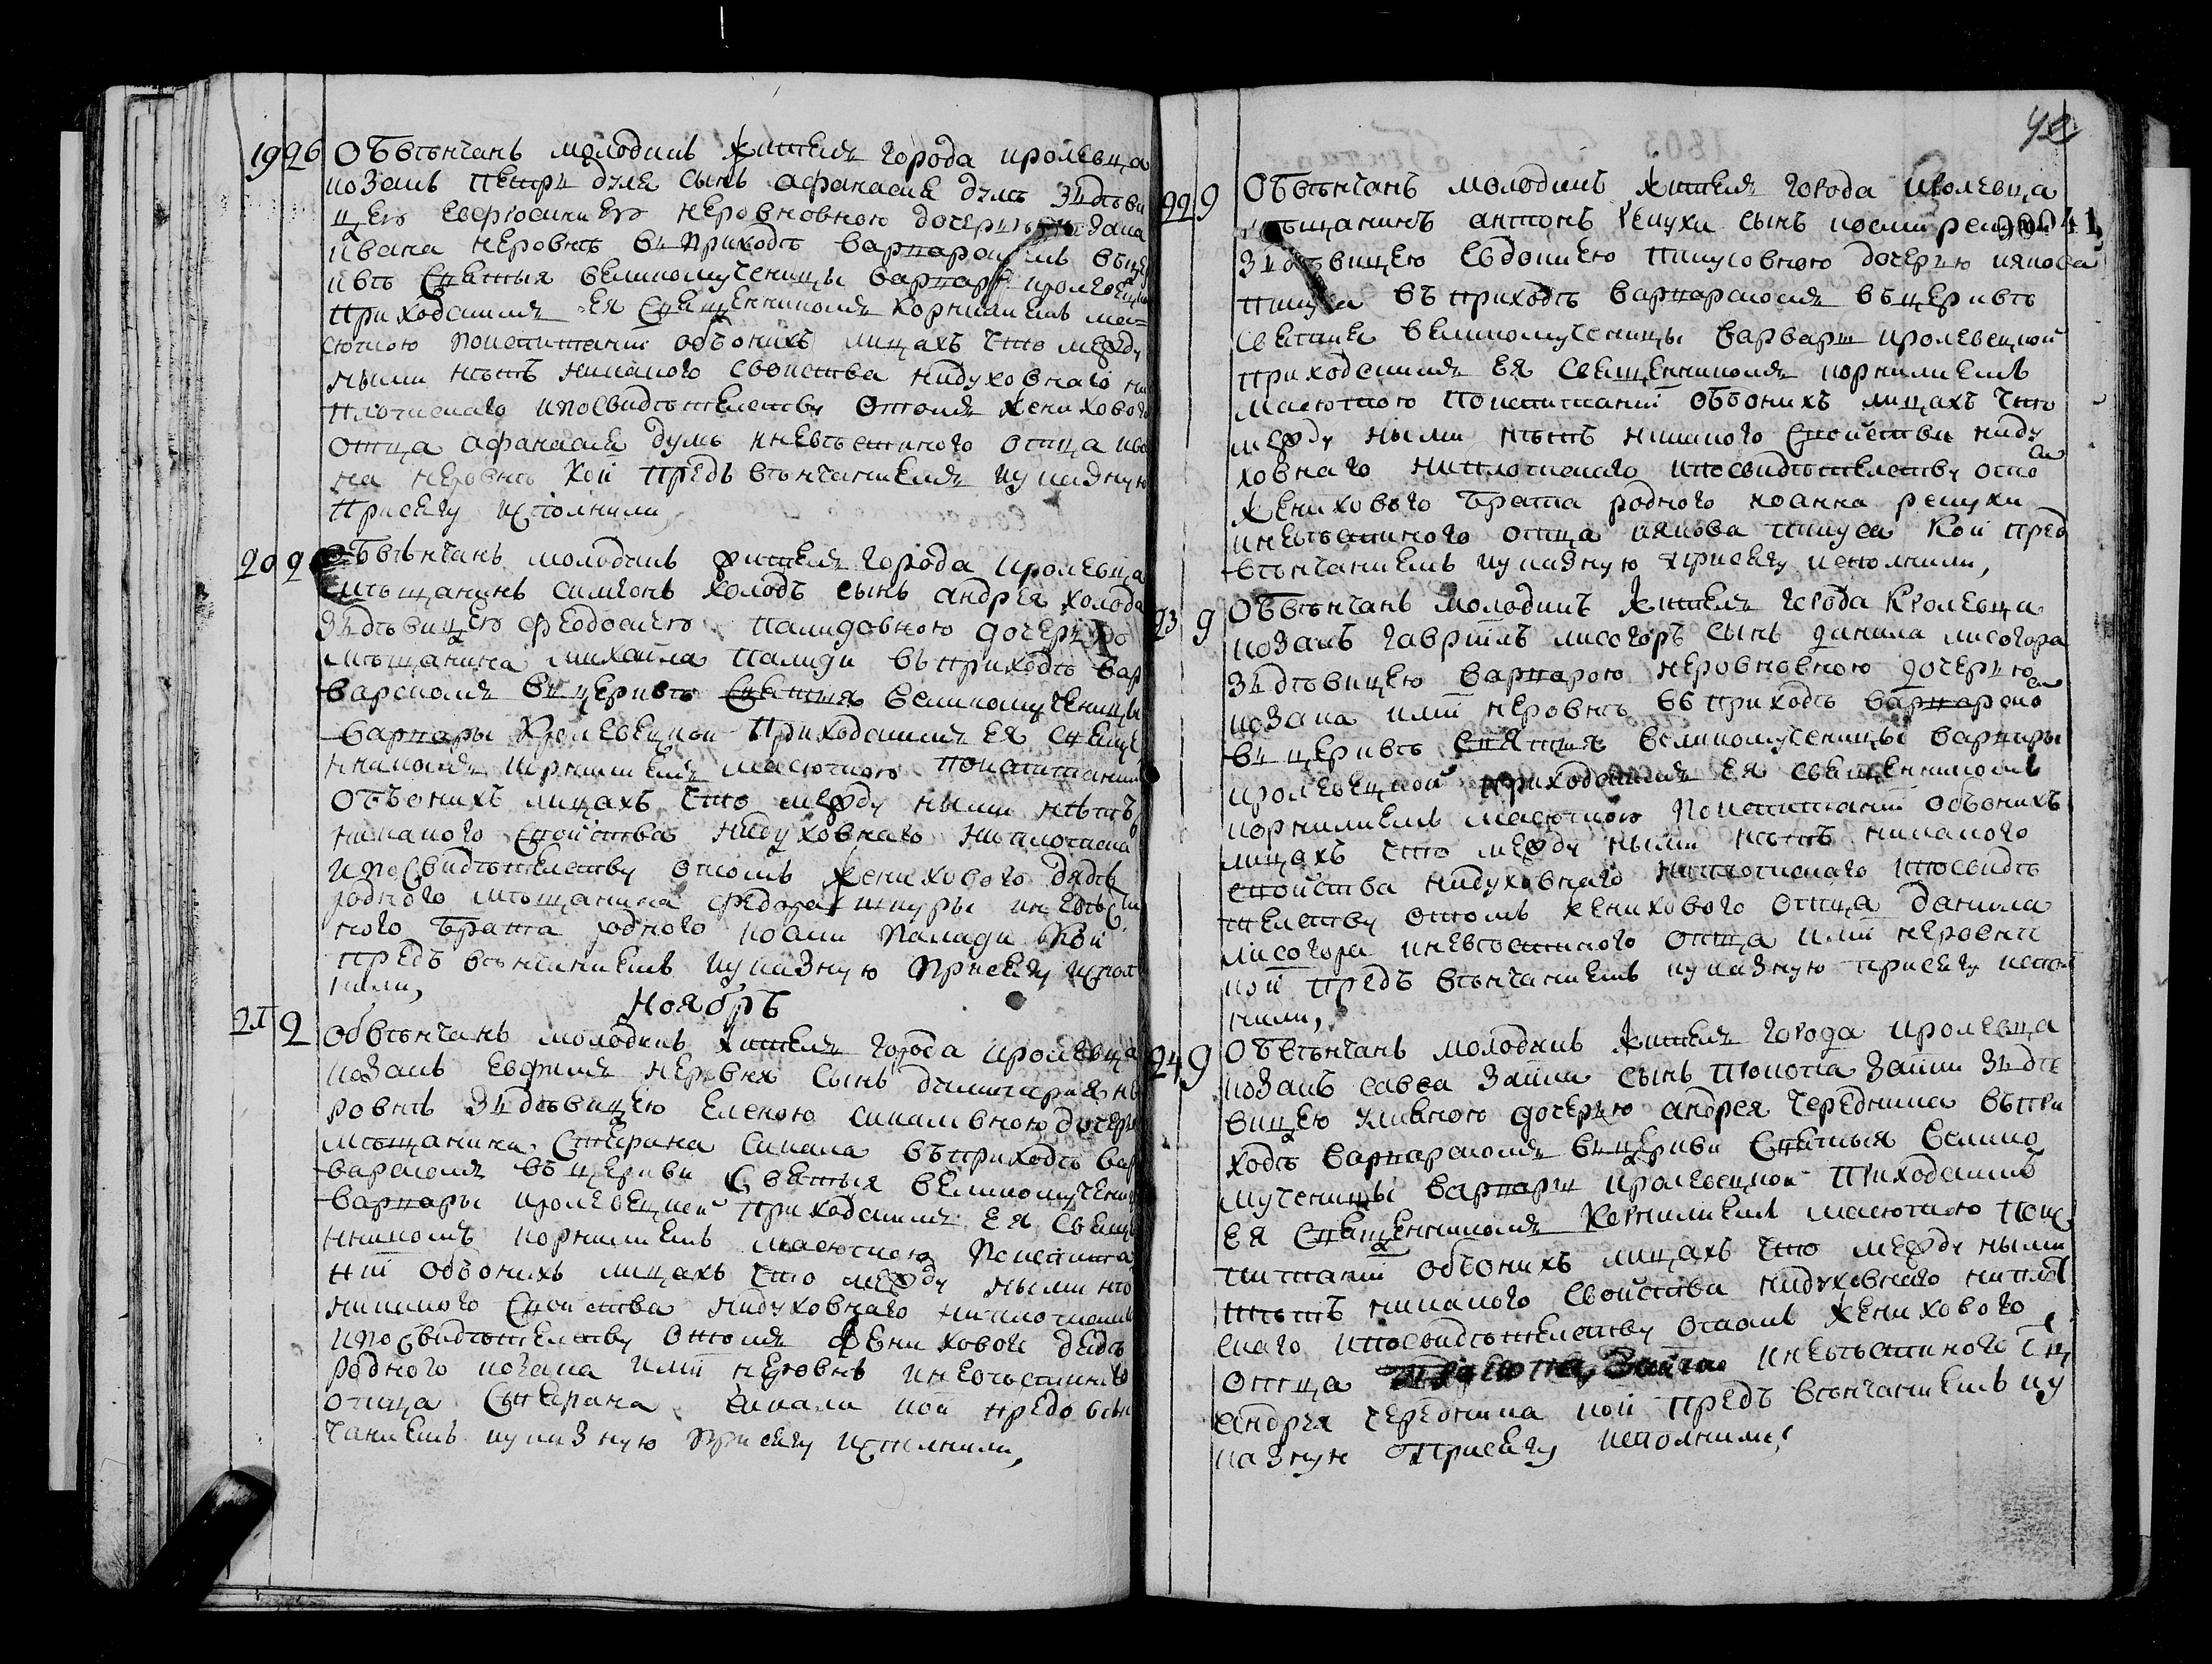 19 26 Обвѣнчанъ молодикъ житель города кролевца
козакъ Петръ дуля сынъ афанасия дулѣ зъ дѣви
цею евфросиниею неровновною дочерию козака
ивана неровнѣ въ приходѣ варварскомъ въ цер
квѣ Святыя великомученицы варвары кролевецкой
приходскимъ ея Священникомъ корнилиемъ ма
сюткою по испитаніи объ оныхъ лицахъ что между
ными нѣтъ никакого свойства ни духовнаго ни
плотскаго и по свидѣтелству о томъ женихового
отца афанасия дулѣ и невѣстиного отца ива
на неровнѣ кои предъ вѣнчаниемъ указную
присягу исполнили
20 2 Обвѣнчанъ молодикъ житель города кролевца
мѣщанинъ симионъ холодъ сынъ андрея холода
зъ дѣвицею феодосиею палидовною дочерию
мѣщанина михаила палиди въ приходѣ вар
варскомъ въ церквѣ Святыя великомученицы
варвары Кролевецкой приходскимъ ея Свяще
нникомъ корнилиемъ масюткою по испитании
объ оныхъ лицахъ что между ными нѣтъ
никакого свойства ни духовнаго ни плотска
и по Свидѣтелству о томъ женихового дядѣ
родного мѣщанина федора шпуры и невѣсти
ного брата родного иоани палиди кои
предъ вѣнчаниемъ указную присягу испол
нили,
Ноябрь
21 2 Обвѣнчанъ молодикъ житель города кролевца
козакъ евфимъ неровня сынъ димитрия не
ровнѣ зъ дѣвицею еленою сикаливною дочер
мѣщанина Стефана сикала въ приходѣ вар
варскомъ въ церкви Святыя великомучени
варвары кролевецкой приходскимъ ея Свяще
нникомъ корнилиемъ масюткою по испита
ніи объ оныхъ лицахъ что между ными нѣ
никакого Свойства ни духовнаго ни плотскаго
и по Свидѣтелству о томъ женихового дядѣ
родного козака иліи неровнѣ и невѣстиного
отца Стефана сикали кои предъ вѣн
чаниемъ указную присягу исполнили,
42
41
22 9 Обвѣнчанъ молодикъ житель города кролевца
мѣщанинъ антонъ репуха сынъ
зъ дѣвицею евдокиею пинусовною дочерию иякова
пинуса въ приходѣ варварскомъ въ церквѣ
святыя великомученицы варвары кролевецкой
приходскимъ ея священникомъ корнилиемъ
масюткою по испитаніи объ оныхъ лицахъ что
между ными нѣтъ никакого свойства ни ду
ховнаго ни плотскаго и по свидѣтелству о томъ
женихового брата родного иоанна репухи
и невѣстиного отца иякова пинуса кои пред
вѣнчаниемъ указную присягу исполнили,
23 9 Обвѣнчанъ молодикъ житель города Кролевца
козакъ гавріилъ лисогоръ сынъ данила лисогора
зъ дѣвицею варварою неровновною дочерию
козака иліи неровнѣ въ приходѣ варварско
въ церквѣ святыя великомученицы варвары
кролевецкой приходскимъ ея священникомъ
корнилиемъ масюткою по испитаніи объ оныхъ
лицахъ что между ными нѣтъ никакого
свойства ни духовнаго ни плотскаго и по свидѣ
телству о томъ женихового отца данила
лисогора и невѣстиного отца иліи неровнѣ
кои предъ вѣнчаниемъ указную присягу испол
нили,
24 9 Обвѣнчанъ молодикъ житель города кролевца
козакъ савва заика сынъ прокопа заики зъ дѣ
вицею улияною дочерию андрея чередника въ при
ходѣ варварскомъ въ церкви Святыя велико
мученицы варвары кролевецкой приходскимъ
ея Священникомъ корнилиемъ масюткою по ис
питаніи объ оныхъ лицахъ что между ными
нѣтъ никакого свойства ни духовнаго ни плот
скаго и по свидѣтелству о томъ женихового
отца и невѣстиного отц
андрея чередника кои предъ вѣнчаниемъ ук
казную присягу исполнили,